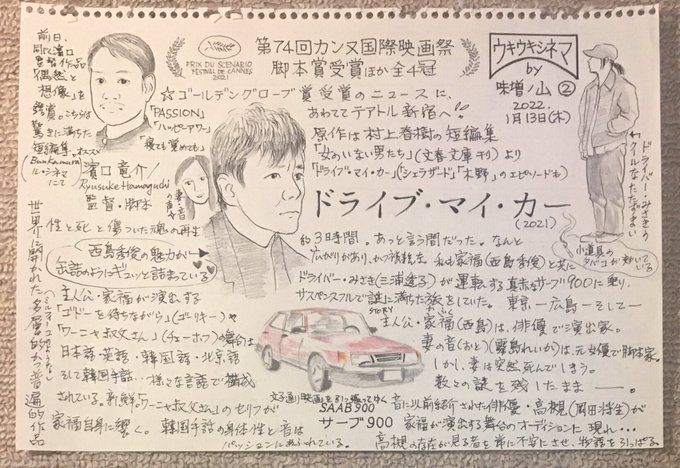 前日、
同じ濱口
監督作品
「偶然と
想像」を
鑑賞。こちらは
驚きに満ちた
短編集。オススメ
(Bunkamura
ル・シネマ
にて
PRIX DU SCENARIO
FESTIVAL DE CANNES
2021
第74回カンヌ国際映画祭
脚本賞受賞ほか全4冠
ウキウキシネマ
by
味噌ノ山 ②
2022.
1月13日(木)
☆ゴールデングローブ賞受賞のニュースに、
あわててテアトル新宿へ!
「PASSION」
「ハッピーアワー」
「寝ても覚めても」
原作は村上春樹の短編集
「女のいない男たち」(文春文庫刊)より
「ドライブ・マイ・カー」「シェエラザード」「木野」のエピソードも
濱口竜介/
Ryusuke Hamaguchi
監督・脚本
妻・音
の声
ドライバー・みさきの
クールなたたずまい
小道具の
タバコが効いている
ドライブ・マイ・カー
(2021)
性と死と傷ついた魂の再生
西島秀俊の魅力が
缶詰のようにギュッと詰まっている
約3時間。あっと言う間だった。なんと
広がりがあり、かつ
私も家福(西島秀俊)と共に
ドライバー・みさき(三浦透子)が運転する真赤なサーブ900に乗り、
サスペンスフルで謎に満ちた旅をしていた。東京―広島―そして―
STORY
主人公・家福(西島)は、俳優で演出家。
妻の音(おと)(霧島れいか)は、元女優で脚本家。
しかし、妻は突然死んでしまう。
数々の謎を残したまま―。
世界に開かれた
多層的かつ普遍的作品
主人公・家福が演出する
「ゴドーを待ちながら」(ゴーリキー)や
「ワーニャ叔父さん」(チェーホフ)の舞台は
日本語・英語・韓国語・北京語
そして韓国手話…様々な言語で構成
されている。新鮮!「ワーニャ叔父さん」のセリフが
家福自身に響く。韓国手話の身体性と音は
パッションにあふれている。
文字通り映画を引っ張ってゆく
SAAB900
サーブ900
音に以前紹介された俳優・高槻(岡田将生)が
家福が演出する舞台のオーディションに現れ…
高槻の存在が見る者を常に不安にさせ、物語を引っぱる。